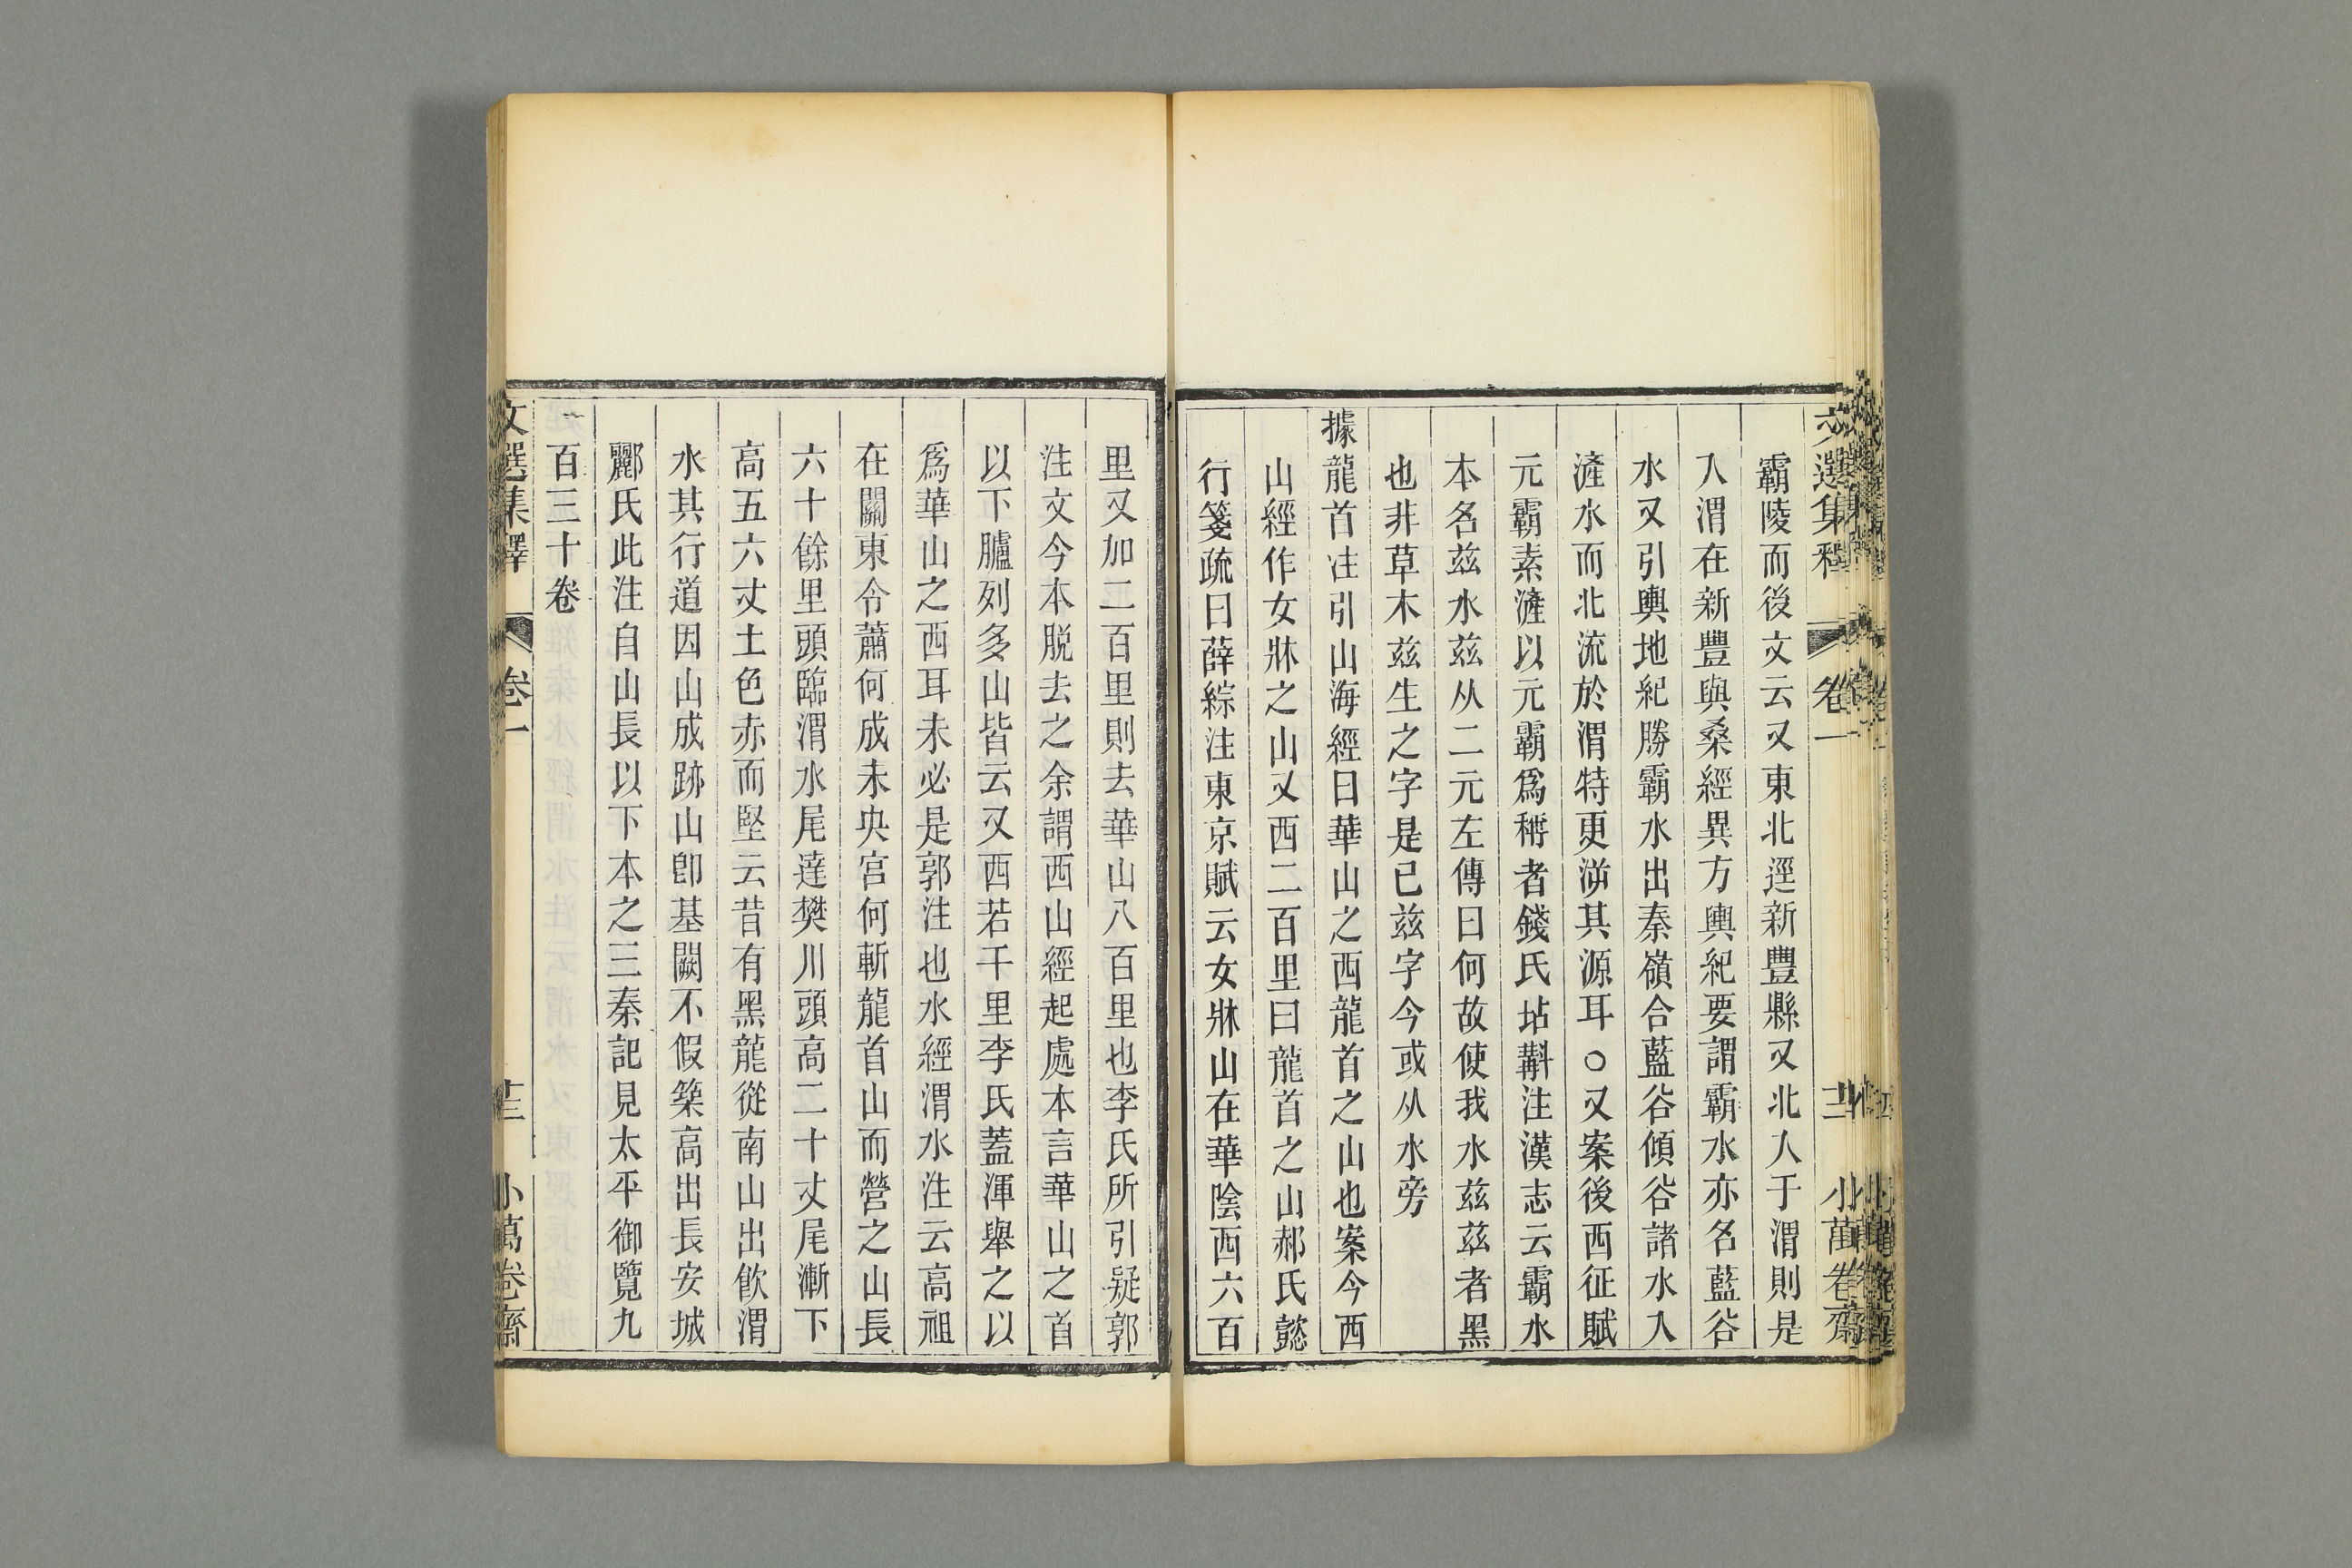 霸陵而後文云又東北逕新豐縣又北入于渭則是
入渭在新豐與桑經異方輿紀要謂霸水亦名藍谷
水又引輿地紀勝霸水出秦嶺合藍谷傾谷諸水入
滻水而北流於渭特更泝其源耳○又案後西征賦
元霸素滻以元霸爲稱者錢氏坫斠注漢志云霸水
本名兹水兹从二元左傳曰何故使我水兹兹者黑
也非草木兹生之字是已兹字今或从水旁
據龍首注引山海經曰華山之西龍首之山也案今西
山經作女牀之山又西二百里曰龍首之山郝氏懿
行箋疏曰薛綜注東京賦云女牀山在華陰西六百
里又加二百里則去華山八百里也李氏所引疑郭
注文今本脱去之余謂西山經起處本言華山之首
以下臚列多山皆云又西若干里李氏蓋渾舉之以
爲華山之西耳未必是郭注也水經渭水注云高祖
在關東令蕭何成未央宮何斬龍首山而營之山長
六十餘里頭臨渭水尾達樊川頭高二十丈尾漸下
高五六丈土色赤而堅云昔有黑龍從南山出飮渭
水其行道因山成跡山卽基闕不假築高出長安城
酈氏此注自山長以下本之三秦記見太平御覽九
百三十卷
文選集釋 卷一 十三 小萬卷齋